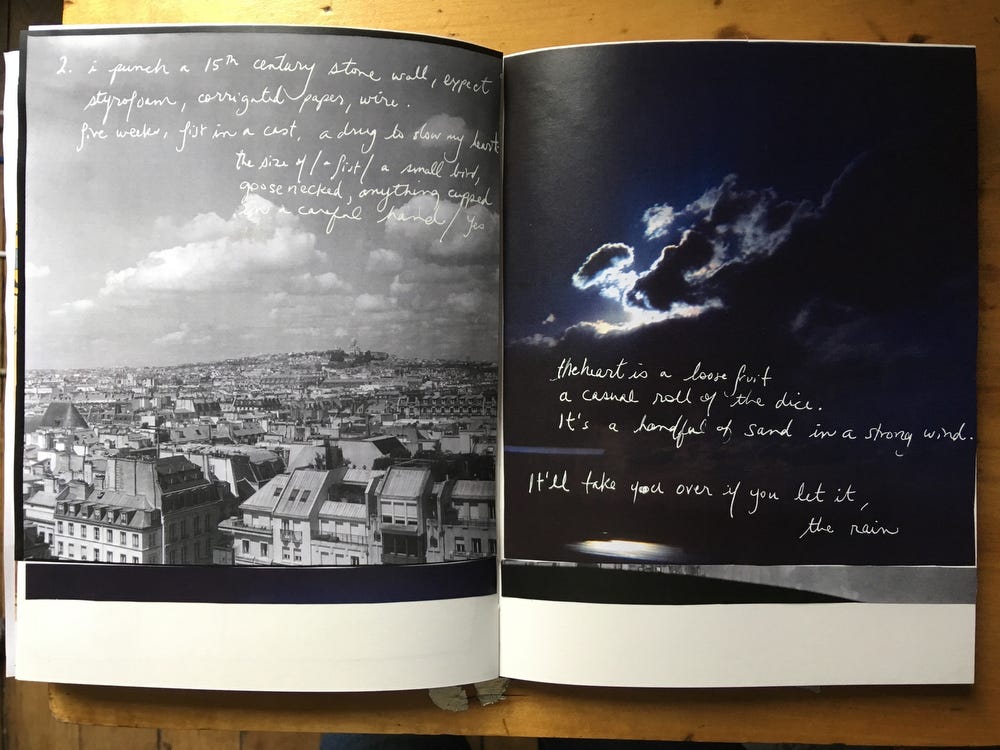 2. i punch a 15th century stone wall, expect
styrofoam, corrigated paper, wire.
five weeks, fist in a cast, a drug to slow my heart
the size of / a fist / a small bird,
goosenecked, anything cupped
in a careful hand / Yes
the heart is a loose fruit
a casual roll of the dice.
It's a handful of sand in a strong wind.
It'll take you over if you let it,
the rain